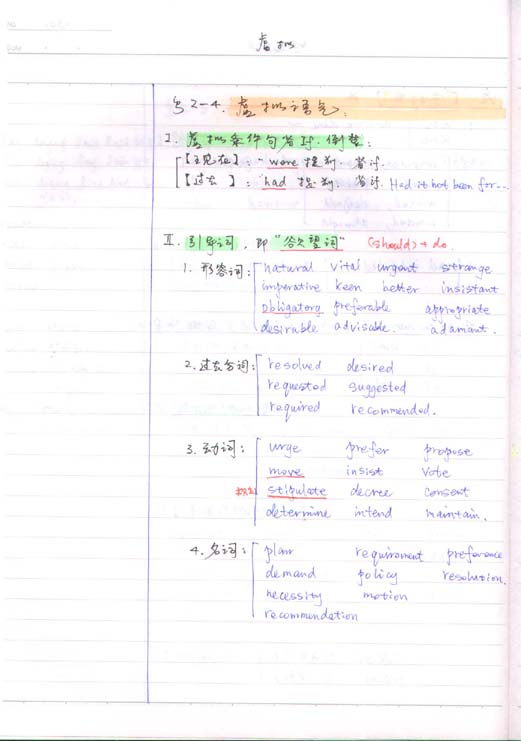 虚拟
2-4. 虚拟语气:
I. 虚拟条件句省if, 倒装:
【现在】: were 提前, 省if.
【过去】: had 提前, 省if. Had it not been for...
II. 引导词, 即"欲望词" (should)+do.
1. 形容词: natural vital urgent strange
imperative keen better insistant
obligatory preferable appropriate
desirable advisable. adamant.
2. 过去分词: resolved desired
requested suggested
required recommended.
3. 动词: urge prefer propose
move insist vote
规定 stipulate decree consent
determine intend maintain.
4. 名词: plan requirement preference
demand policy resolution.
necessity motion
recommendation